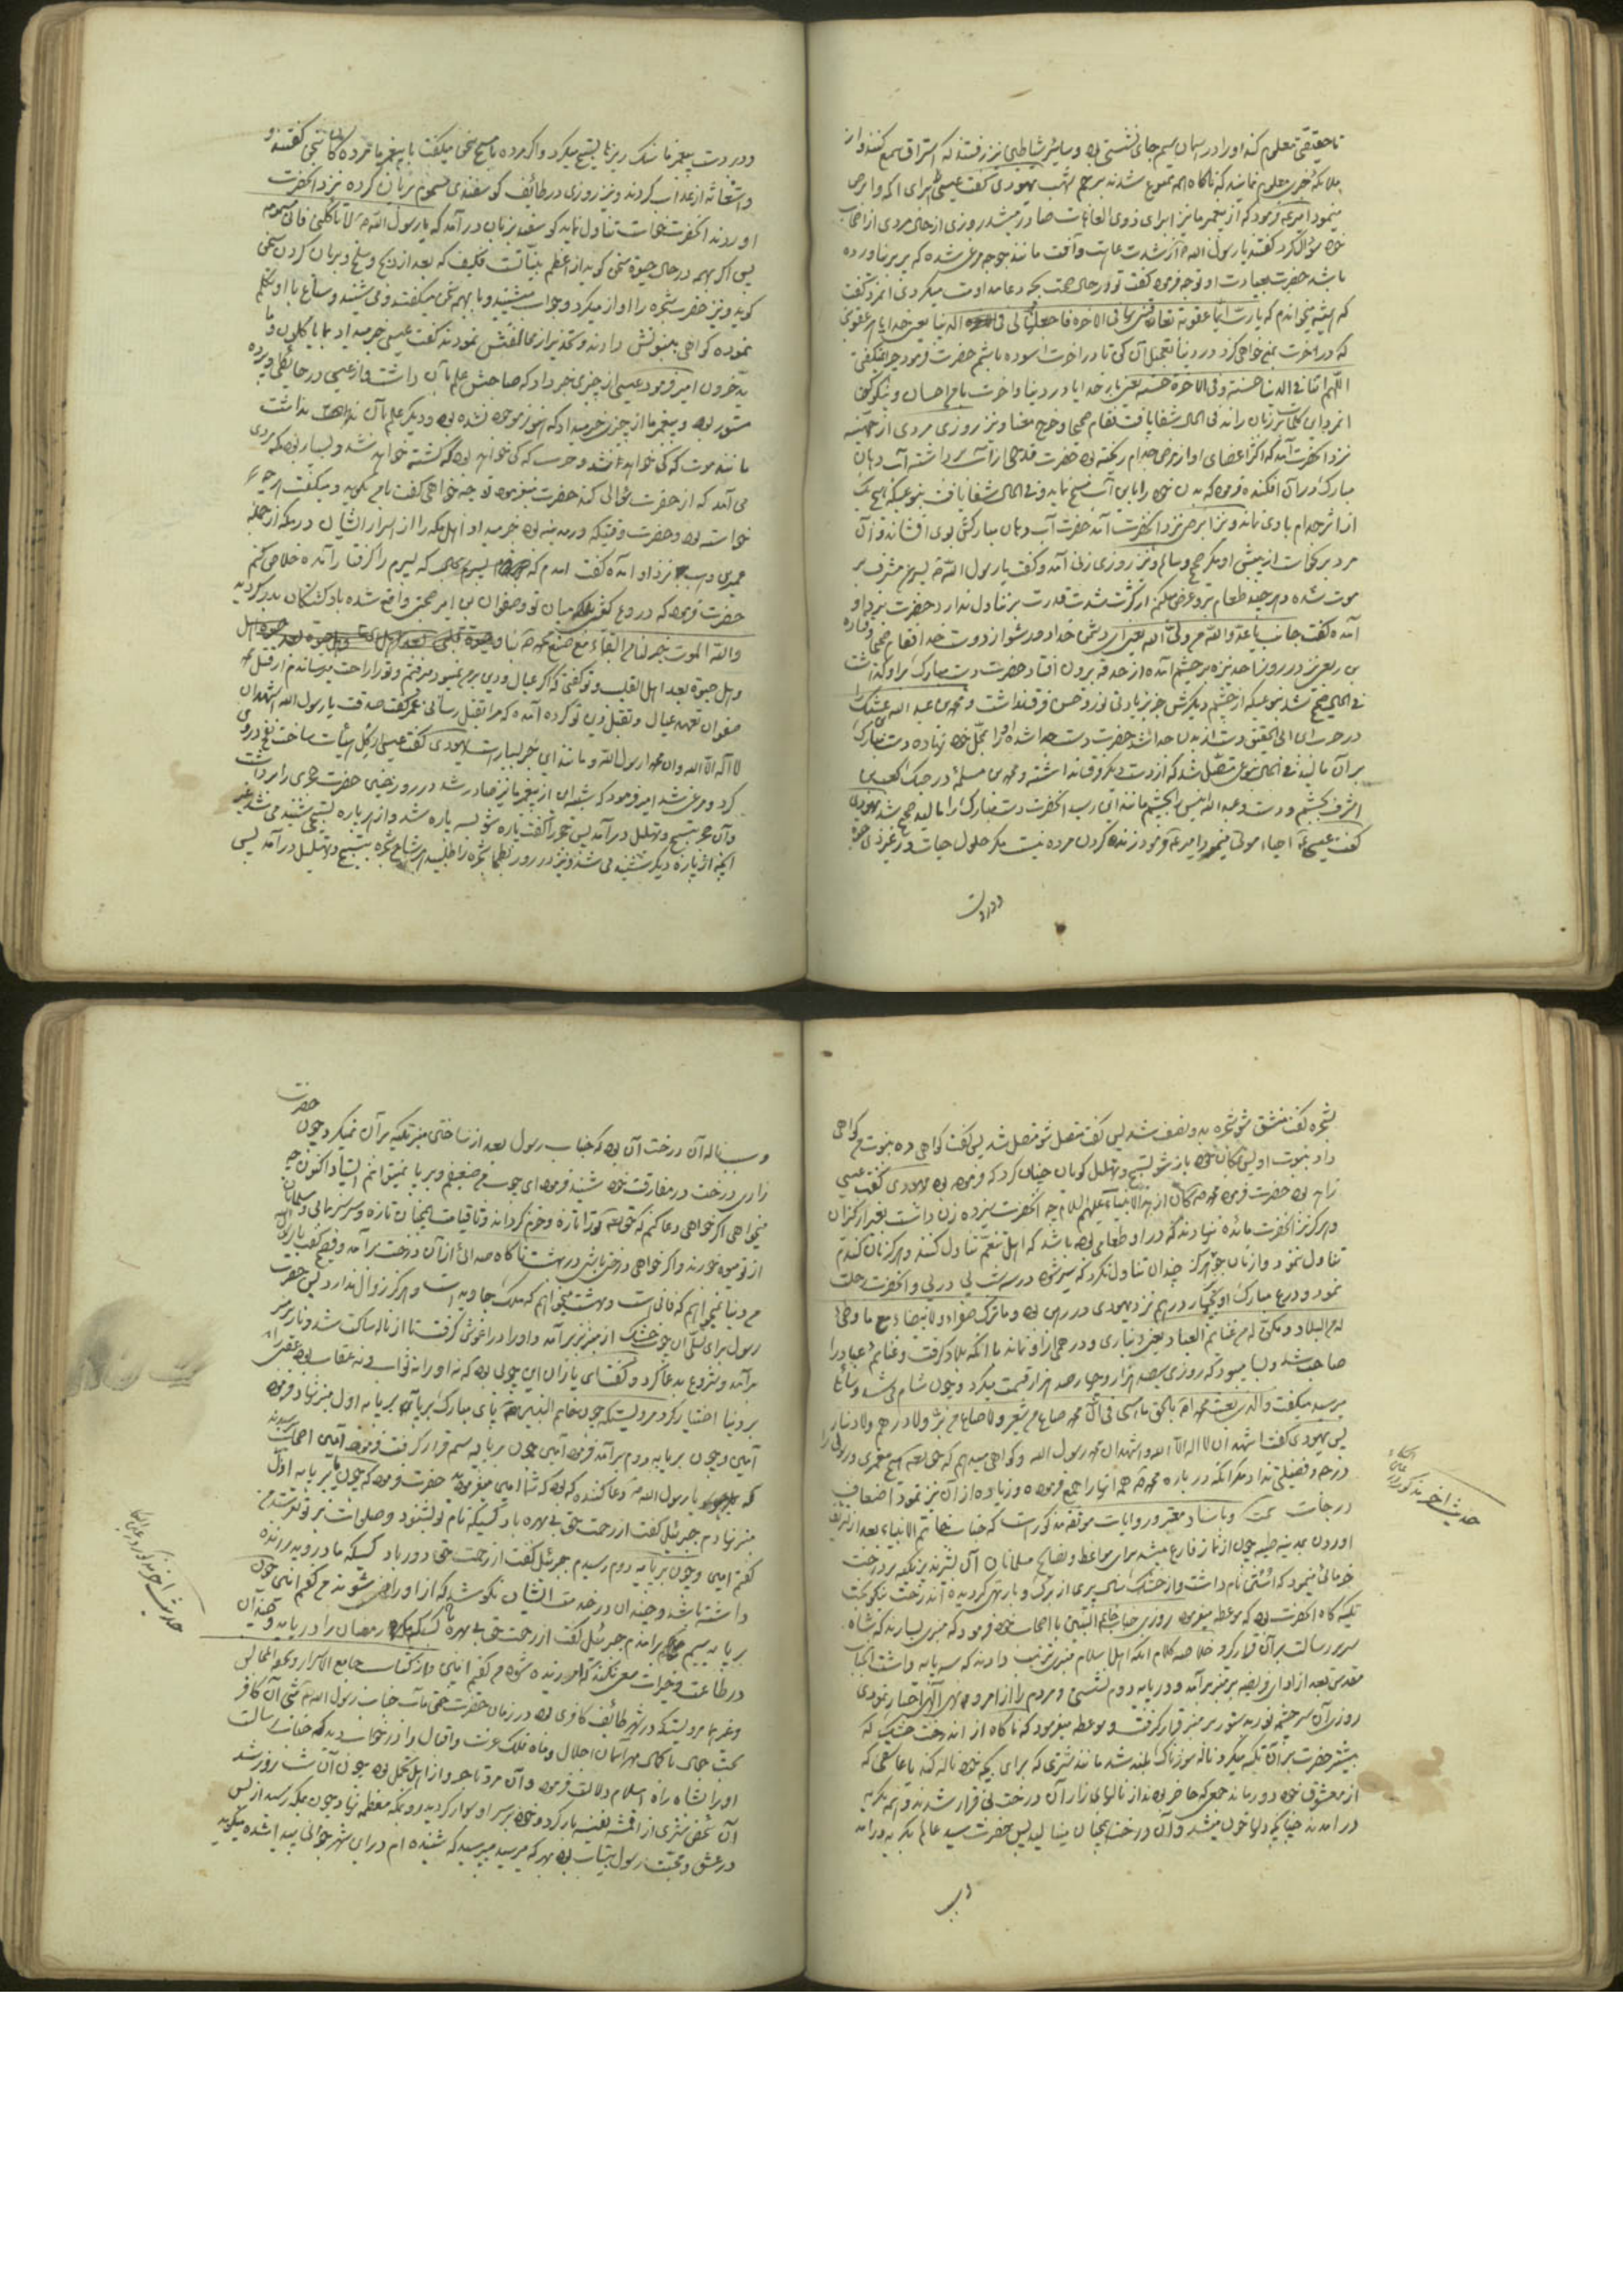 تا حقیقتی معلوم کند او را در آسمان سیم جای نشستن بود و سایر شاطین نیز رفتند که استراق سمع کنند و از
ملائکه خبر معلوم نمایند که ناکاه همه ممنوع شدند برجم شهب یهودی کفت عیسی ابرای اکمه و ابرص
مینمود امیر فرمود که از پیغمبر ما نیز ابرای ذوی العاهات صادر میشد روزی از حال مردی از اصحاب
خود سؤال کرد کفتند یا رسول الله از شدت عاهت و آفت مانند جوجه مرغ شده که پر بر نیاورده
باشد حضرت بعیادت او توجه فرموده کفت تو در حال صحت بچه دعا مداومت میکردی آنمرد کفت
که همیشه میخواندم که یا رب ایما عقوبة تعاقبنی بها فی الاخره فاجعلها لی فی الدنیا یعنی خدایا هر عقوبتی
که در آخرت بمن خواهی کرد در دنیا تعجیل آن کن تا در آخرت آسوده باشم حضرت فرمود چرا نکفتی
اللهم اتنا فی الدنیا حسنة و فی الاخرة حسنة یعنی خدایا در دنیا و آخرت با ما احسان و نیکویی کن
آنمرد این کلمات بر زبان راند فی الحال شفا یافت فقام صحیحا و خرج معنا و نیز روزی مردی از جهینه
نزد آنحضرت آمد که اکثر اعضای او از مرض جذام ریخته بود حضرت قدحی از آب برداشته آب دهان
مبارک در آن افکنده فرمود که بدن خود را باین آب مسح نماید و فی الحال شفا یافت بنوعیکه هیچ یک
از اثر جذام با وی نماند و نیز ابرصی نزد آنحضرت آمد حضرت آب دهان مبارکش بوی افشاند و آن
مرد برنخاست از پیش او مکر صحیح و سالم و نیز روزی زنی آمد و کفت یا رسول الله پسرم مشرف بر
موت شده و هر چند طعام بر وی عرض میکنم از کثرت شدت قدرت بر تناول ندارد حضرت نزد او
آمده کفت جانب یا عدو الله من ولی الله یعنی ای دشمن خدا دور شو از دوست خدا فقام صحیحا و قتاده
بن ربعی نیز در روز احد نیزه بر چشم آمده از حدقه بیرون افتاد حضرت دست مبارک بر او کذاشت
فی الحال صحیح شد بنوعیکه از چشم دیکرش جز بزیادتی نور و حسن فرق نداشت و محمد بن عبد الله عتیک را
در حرب ابن ابی الحقیق دست از بدن جدا شد حضرت دست جدا شده او را بمحل خود نهاده دست مبارک
بر آن مالید فی الحال بنوعی متصل شد که از دست دیکر فرقی نداشته و محمد بن مسلمه در جنک کعب بن
اشرف بچشم و دست و عبد الله انیس بچشم مانند این رسید آنحضرت دست مبارک را مالید صحیح شد یهودی
کفت عیسی احیاء موتی مینمود امیر فرمود زنده کردن مرده نیست مکر حلول حیات در غیر ذی حیوة
و در دست
و در دست پیغمبر ما سنک ریزها تسبیح میکرد و اکر مرده با مسیح سخن میکفت با پیغمبر ما مرده کان سخن کفتند و
استغاثه از عذاب کردند و نیز روزی در طائف کوسفندی مسموم بریان کرده نزد آنحضرت
آوردند آنحضرت خواست تناول نماید کوسفند بزبان درآمد که یا رسول الله لا تاکلنی فانی مسمومه
پس اکر بهیمه در حال حیوة سخن کوید از اعظم بینات است فکیف که بعد از ذبح و سلخ و بریان کردن سخن
کوید و نیز حضرت شجره را آواز میکرد و جواب میشنید و با بهیمه سخن میکفتند و می شنید و سباع با او تکلم
نموده کواهی بنبوتش دادند و تحذیر از مخالفتش نمودند کفت عیسی خبر میداد بما یاکلون و ما
یدخرون امیر فرمود عیسی از چیزی خبر داد که صاحبش علم بآن داشت و از عیسی در حایطی و پرده
مستور بود و پیغمبر ما از چیزی خبر میداد که هنوز موجود نشده بود و دیکری علم بآن نداشت
مانند موت که کی خواهد شد و حرب که کی خواهد بود که کشته خواهد شد و بسیار بود که مردی
می آمد که از حضرت سؤالی کند حضرت میفرمود تو چه خواهی کفت یا من بکویم و میکفت هر چه
خواسته بود و حضرت وقتیکه در مدینه بود خبر میداد اهل مکه را از اسرار ایشان در مکه از جمله
عمیر بن وهب نزد او آمده کفت آمدم که پسرم را که کرفتار آمده خلاص کنم
حضرت فرمود که دروغ کفتی بلکه میان تو و صفوان بن امیه صحبتی واقع شده یاد کشتکان بدر کردید
والله الموت خیر لنا من البقاء مع صنع محمد بنا
و هل حیوة بعد اهل القلیب و تو کفتی که اکر عیال و دین بر من نمیبود میرفتم و تو را راحت میرساندم از قتل محمد
صفوان تعهد عیال و تقبل دین تو کرده آمده که مرا بقتل رسانی عمیر کفت صدقت یا رسول الله اشهد ان
لا اله الا الله و ان محمدا رسول الله و مانند این خبر بسیار است یهودی کفت عیسی از کل هیأت مرغ ساخت نفخ در وی
کرد و مرغی شد امیر فرمود که شبیه این از پیغمبر ما نیز صادر شد در روز حنین حضرت حجری را برداشت
و آن حجر بتسبیح و تهلیل درآمد پس حجر را کفت پاره شو سه پاره شد و از هر پاره تسبیحی شنیده می شد غیر
آنچه از پاره دیکر شنیده می شد و نیز در روز بطحا شجره را طلبید هر شاخ شجره بتسبیح و تهلیل درآمد پس
بشجره کفت منشق شو شجره بدو نصف شد پس کفت متصل شو متصل شد پس کفت کواهی ده بنبوت من کواهی
داد بنبوت او پس بمکان خود باز شو بتسبیح و تهلیل کویان چنان کرد که فرموده بود یهودی کفت عیسی
زاهد بود حضرت فرمود محمد کان ازهد الانبیاء علیهم السلام چه آنحضرت سیزده زن داشت بغیر از کنیزان
و هرکز نزد آنحضرت مائده نهادند که در او طعامی بوده باشد که اهل تنعم تناول کنند و هرکز نان کندم
تناول ننمود و از نان جو هرکز چندان تناول نکرد که سیر شود در سه شب پی در پی و آنحضرت رحلت
نمود و درع مبارک او بچهار درهم نزد یهودی در رهن بود و ما ترک صفراء و لا بیضاء مع ما وطئ
له من البلاد و مکن له من غنایم العباد یعنی دیناری و درهمی از او نماند با آنکه بلاد کرفت و غنایم عباد را
صاحب شد و بسا میبود که روزی سیصد هزار و چهار صد هزار قسمت میکرد و چون شام می شد و سائلی
میرسید میکفت والذی بعث محمدا بالحق ما امسی فی آل محمد صاع من شعیر و لا صاع من بر و لا درهم و لا دینار
پس یهودی کفت اشهد ان لا اله الا الله و اشهد ان محمدا رسول الله و کواهی میدهم که حق تعالی هیچ پیغمبری و رسولی را
درجه و فضیلتی نداد مکر آنکه در باره محمد همه آنها را جمع فرموده و زیاده از آن نیز نمود اضعاف
درجات و باسناد معتبر و روایات موثقه مذکور است که جناب خاتم الانبیاء بعد از تشریف
آوردن بمدینه طیبه چون از نماز فارغ میشد برای مواعظ و نصایح مسلمانان آن بشیر نذیر تکیه بر درخت
خرمائی مینمود که استن نام داشت و از خشک سالی بری از برک و بار تهی کردیده آندرخت نیکو بخت
تکیه کاه آنحضرت بود که موعظه میفرمود روزی جناب خاتم النبیین با اصحاب خود فرمود که منبری بسازند که شاه
سریر رسالت بر آن قرار کیرد خلاصه کلام آنکه اهل اسلام منبری ترتیب دادند که سه پایه داشت آنجناب
مقدس بعد از ادای فریضه بر منبر برآمد و در پایه دوم نشستی و مردم را از امر و نهی الهی اخبار نمودی
روزی آن سرچشمه نور بدستور بر منبر قرار کرفت و موعظه میفرمود که ناکاه از آندرخت خشک که
پیشتر حضرت بر آن تکیه میکرد ناله سوزناک بلند شد مانند شتری که برای بچه خود ناله کند یا عاشقی که
از معشوق خود دور ماند جمعی که حاضر بودند از نالهای زار آن درخت بی قرار شدند و همه بکریه
درآمدند چنانکه دلها خون میشد و آن درخت همچنان مینالید پس حضرت سید عالم بکریه درآمد
و سبب
حدیث آخر مذکور در
و سبب ناله آن درخت آن بود که جناب رسول بعد از ساختن منبر تکیه بر آن نمیکرد چون حضرت
زاری درخت در مفارقت خود شنید فرمود ای چوب من ضعیفم و بر پا نمیتوانم ایستاد اکنون چه
میخواهی اکر خواهی دعا کنم که حق تعالی تو را تازه و خرم کرداند و تا قیامت همچنان تازه و سرسبز بمانی و مسلمانان
از تو میوه خورند و اکر خواهی درختی باشی در بهشت ناکاه صدائی از آن درخت برآمد و فصیح کفت یا رسول الله
من دنیا نمیخواهم که فانی است و بهشت میخواهم که ملک جاوید است و هرکز زوال ندارد پس حضرت
رسول برای تسلی آن چوب خشک از منبر بزیر آمد و او را در آغوش کرفت تا از ناله ساکت شد و باز بر منبر
برآمد و شروع بدعا کرد و کفت ای یاران این چوبی بود که نه او را نه ثواب و نه عقاب بود عقبی را
بر دنیا اختیار کرد مرویست که چون خاتم النبیین پای مبارک بر پایه اول منبر نهاد فرمود
آمین و چون بر پایه دوم برآمد فرمود آمین چون بر پایه سیم قرار کرفت فرمود آمین اصحاب پرسیدند
که یا رسول الله دعا کننده که بود که شما آمین میفرمودید حضرت فرمود که چون پا بر پایه اول
منبر نهادم جبرئیل کفت از رحمت حق بی بهره باد کسیکه نام تو بشنود و صلوات بر تو نفرستد من
کفتم آمین و چون بر پایه دوم رسیدم جبرئیل کفت از رحمت حق دور باد کسیکه مادر و پدر زنده
داشته باشد و چندان در خدمت ایشان نکوشد که از او راضی شوند من کفتم آمین چون
بر پایه سیم برآمدم جبرئیل کفت از رحمت حق بی بهره باد کسیکه ماه رمضان را دریابد و چندان
در طاعت و خیرات سعی نکند که آمرزیده شود من کفتم آمین و از کتاب جامع الاسرار و تحفة المجالس
و غیرهما مرویست که در شهر طائف کافری بود در زمان حضرت ختمی مآب جناب رسول الله شبی آن کافر
بخت جوان ناکهان مهر آسمان اجلال و ماه فلک عزت و اقبال را در خواب دید که جناب رسالت
او را بشاه راه اسلام دلالت فرمود و آن مرد تاجر و از اهل تجمل بود چون آن شب روز شد
آن شخص شتری از اقمشه نفیسه بار کرد و خود بر سر او سوار کردید رو بمکه معظمه نهاد چون بمکه رسید از بس
در عشق و محبت رسول بیتاب بود بهر که میرسید میپرسید که شنیده ام در این شهر جوانی پیدا شده میکوید
حدیث آخر مذکور در